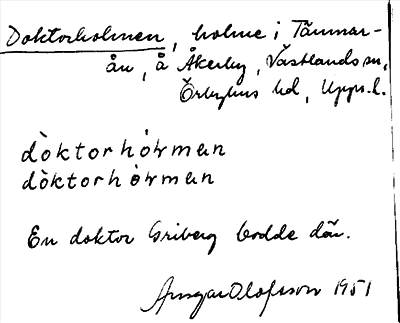 Doktorholmen, holme i Tämnar-
ån, å Åkerby, Västlands sn,
Örbyhus hd, Upps. l.
dòktorhòɽmen
dòktorhòɽmen
En doktor Griberg bodde där.
Ansgar Olofsson 1951